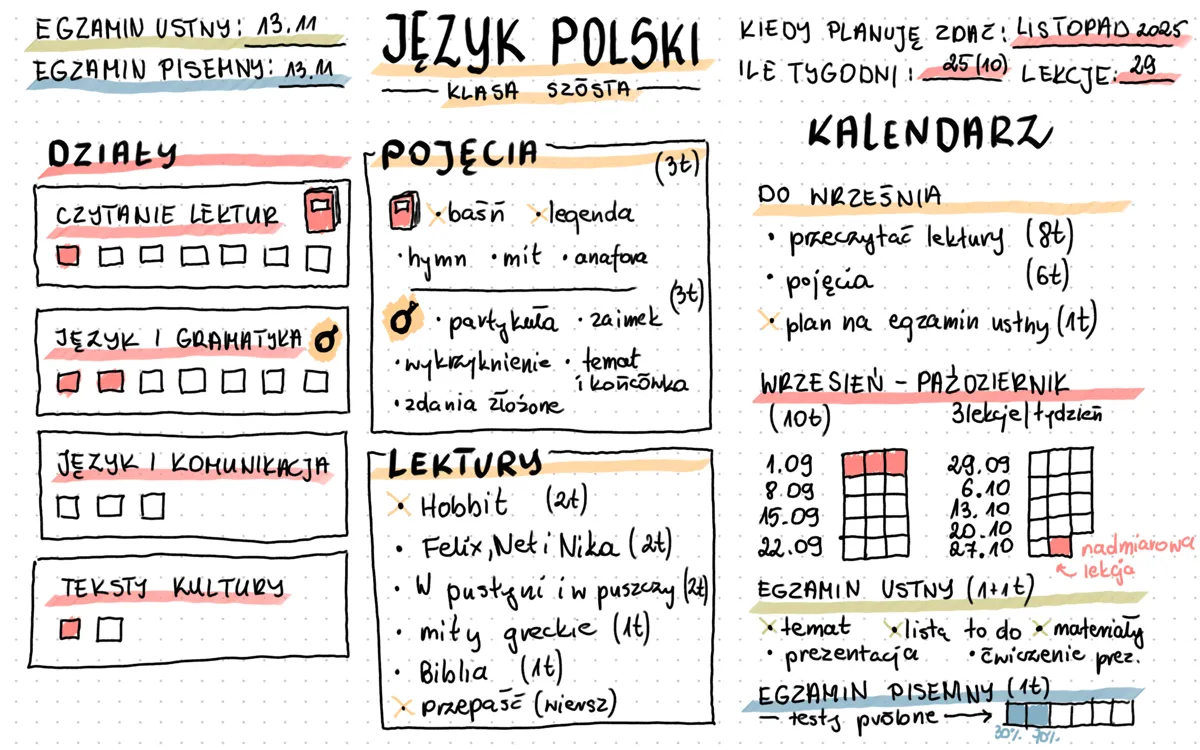 EGZAMIN USTNY: 13.11
EGZAMIN PISEMNY: 13.11
JĘZYK POLSKI
KLASA SZÓSTA
KIEDY PLANUJĘ ZDAĆ: LISTOPAD 2025
ILE TYGODNI: 25(10) LEKCJE: 29
DZIAŁY
CZYTANIE LEKTUR
JĘZYK I GRAMATYKA
JĘZYK I KOMUNIKACJA
TEKSTY KULTURY
POJĘCIA (3t)
• baśń • legenda
• hymn • mit • anafora
(3t)
• partykuła • zaimek
• wykrzyknienie • temat i końcówka
• zdania złożone
LEKTURY
• Hobbit (2t)
• Felix, Net i Nika (2t)
• W pustyni i w puszczy (2t)
• mity greckie (1t)
• Biblia (1t)
• przepaść (wiersz)
KALENDARZ
DO WRZEŚNIA
• przeczytać lektury (8t)
• pojęcia (6t)
• plan na egzamin ustny (1t)
WRZESIEŃ – PAŹDZIERNIK
(10t) 3lekcje/tydzień
1.09
8.09
15.09
22.09
29.09
6.10
13.10
20.10
27.10
nadmiarowa
lekcja
EGZAMIN USTNY (1+1t)
• temat • lista to do • materiały
• prezentacja • ćwiczenie prez.
EGZAMIN PISEMNY (1t)
— testy próbne →
30% 70%